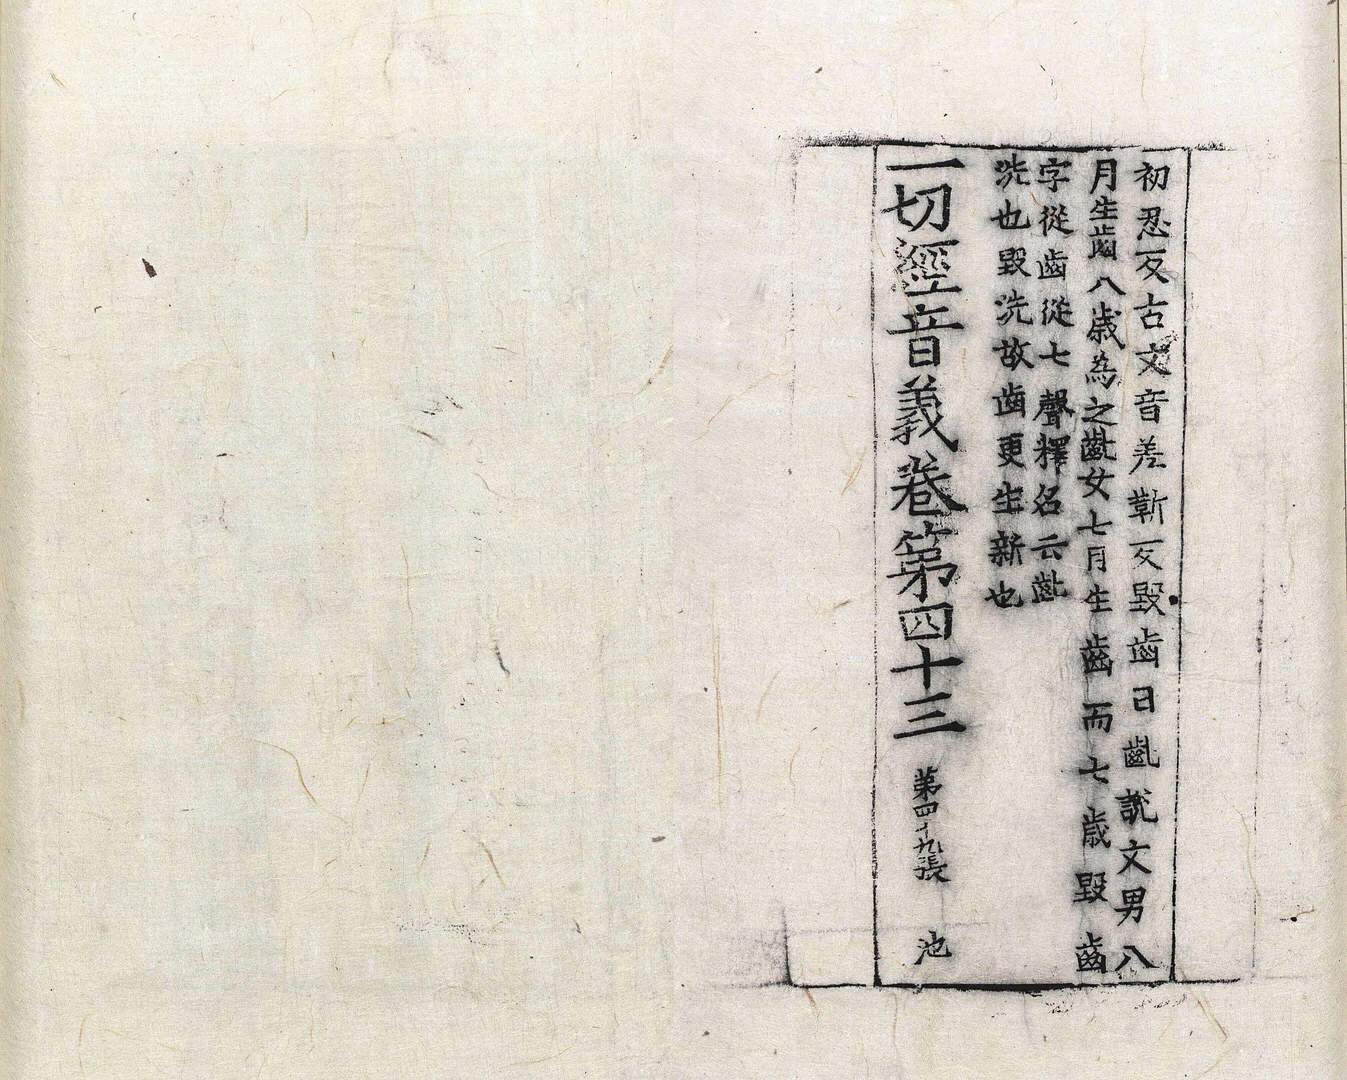 初忍反古文音差靳反毀齒曰齔說文男八
月生齒八歲為之齔女七月生齒而七歲毀齒
字從齒從七聲釋名云齔
洗也毀洗故齒更生新也
一切經音義卷第四十三
第四十九張 池